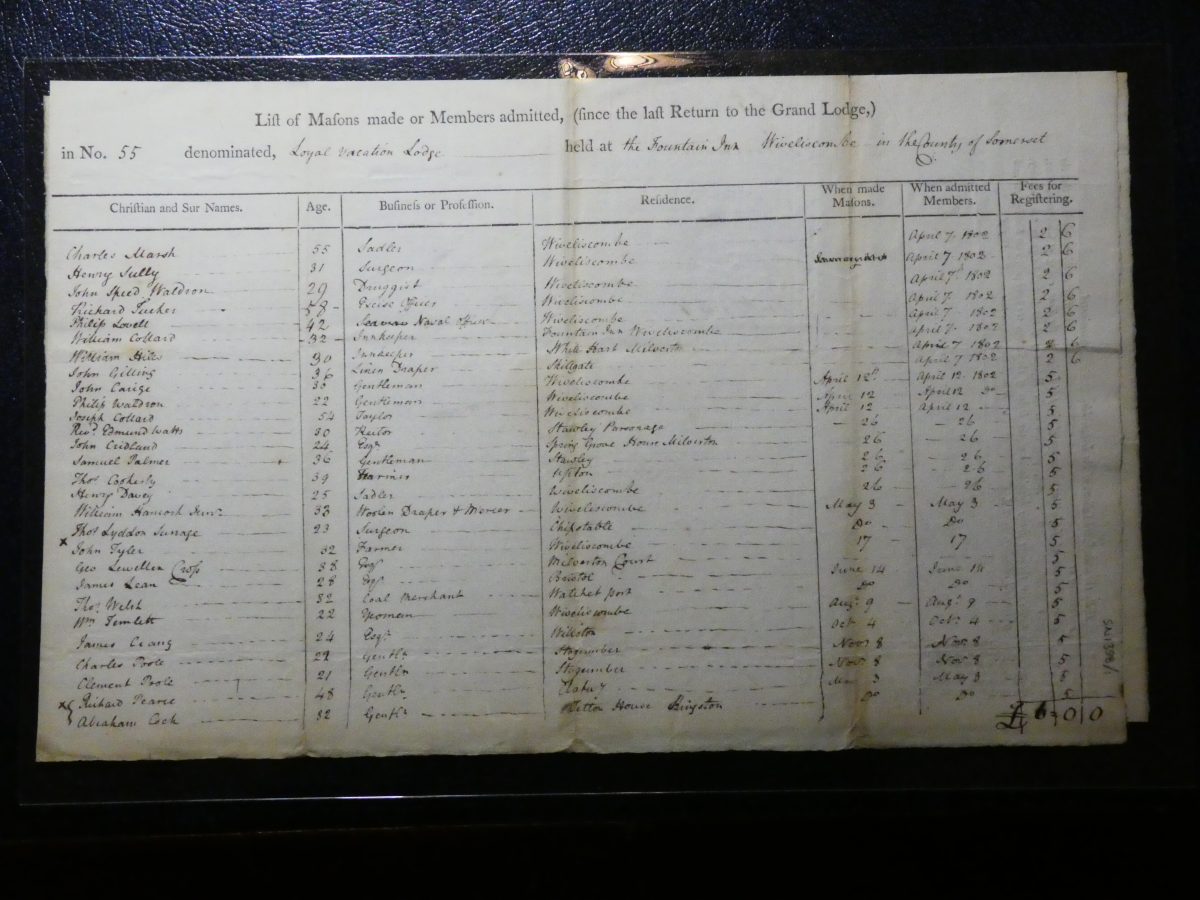 List of Maſons made or Members admitted, (ſince the laſt Return to the Grand Lodge,)
in No. 55 denominated, Loyal Vacation Lodge held at the Fountain Inn Wiveliscombe in the County of Somerset
Chriſtian and Sur Names. Age. Buſineſs or Profeſſion. Reſidence. When made Maſons. When admitted Members. Fees for Regiſtering.
Charles Marsh 55 Sadler Wiveliscombe April 7. 1802 2 6
Henry Sully 31 Surgeon Wiveliscombe April 7. 1802 2 6
John Speed Waldron 29 Druggist Wiveliscombe April 7. 1802 2 6
Richard Tucker 58 Excise Officer Wiveliscombe April 7. 1802 2 6
Philip Lovell 42 Naval Officer Wiveliscombe April 7 1802 2 6
William Collard 32 Innkeeper Fountain Inn Wiveliscombe April 7. 1802 2 6
William Hites 30 Innkeeper White Hart Milverton April 7 1802 2 6
John Gilling 36 Linen Draper Skilgate April 7 1802 2 6
John Carige 30 Gentleman Wiveliscombe April 12th April 12. 1802 5
Philip Waldron 22 Gentleman Wiveliscombe April 12 April 12 Do 5
Joseph Collard 54 Taylor Wiveliscombe April 12 April 12 5
Revd. Edmund Watts 30 Rector Stawley Parsonage 26 26 5
John Cridland 24 Esqr. Spring Grove House Milverton 26 26 5
Samuel Palmer 36 Gentleman Stawley 26 26 5
Thos Cookesly 39 Farmer Upton 26 26 5
Henry Davey 25 Sadler Wiveliscombe 26 26 5
William Hancock Junr 33 Woolen Draper & Mercer Wiveliscombe May 3 May 3 5
Thos Lyddon Surrage 23 Surgeon Chipstable Do Do 5
x John Tyler 32 Farmer Wiveliscombe 17 17 5
Geo Lewellen Croſs 38 Esqr Milverton Court 5
James Lean 28 Esqr Bristol June 14 June 14 5
Thos Welsh 32 Coal Merchant Watchet port Do Do 5
Wm Temlett 22 Yeoman Wiveliscombe Augt 9 Augt 9 5
James Crang 24 Esqr. Oct 4 Oct. 4 5
Charles Poole 29 Gentln Stogumber Novr 8 Novr. 8 5
Clement Poole 21 Gentln Stogumber Novr. 8 Novr. 8 5
x Richard Pearse 48 Gentln May 3 May 3 5
Abraham Cock 32 Gentln House Do Do 5
£ 6 . 0 . 0